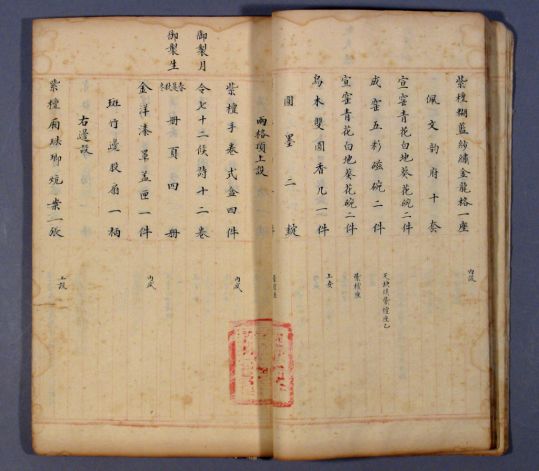 紫檀糊藍紗繡金龍格一座
內設
佩文韵府十套
宣窑青花白地葵花碗二件
天地洪紫檀座乙
成窑五彩磁碗二件
宣窑青花白地葵花碗二件
紫檀座
烏木雙圓香几一件
上安
圓墨二錠
兩格頂上設
紫檀手卷式盒四件
內盛
御製月令七十二候詩十二卷
御製生春是秋冊頁四冊
金洋漆罩盖匣一件
內盛
斑竹邊股扇一柄
右邊設
紫檀廂琺瑯炕案一張
上設